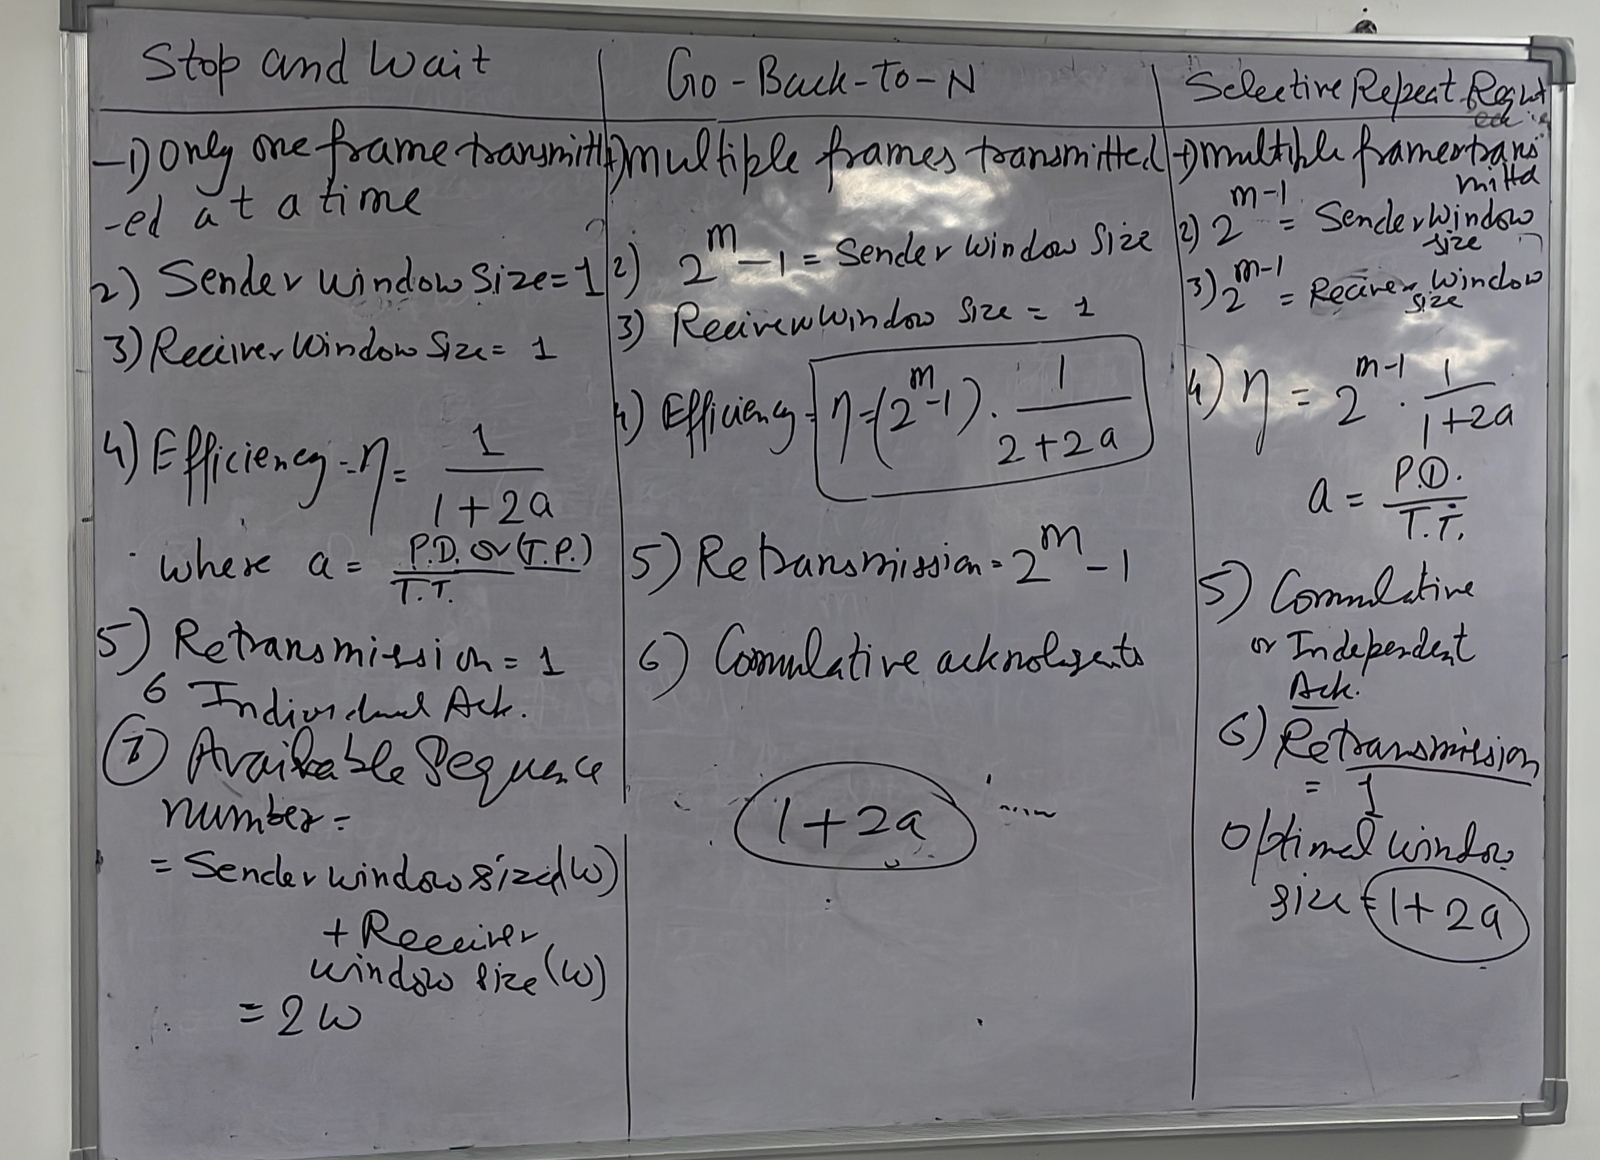 Stop and Wait
-1) Only one frame transmitt
-ed at a time
2) Sender Window Size = 1
3) Receiver Window Size = 1
4) Efficiency - η = 1 / 1 + 2a
where a = P.D. or (T.P.) / T.T.
5) Retransmission = 1
6 Individual Ack.
7 Available Sequence
number =
= Sender window size (w)
+ Receiver
window size (w)
= 2w
Go-Back-To-N
1) multiple frames transmitted
2) 2^m - 1 = Sender Window Size
3) Window Size = 1
4) Efficiency = η = (2^m - 1) . 1 / 2 + 2a
5) Retransmission = 2^m - 1
6) Commulative
1 + 2a
Selective Repeat
1) multiple frames trans
mitted
2) 2^m-1 = Sender Window
size
3) 2^m-1 = Reciver Window
size
4) η = 2^m-1 . 1 / 1 + 2a
a = P.D. / T.T.
5) Commulative
or Independent
Ack.
6) Retransmission
= 1
Optimal window
size = 1 + 2a